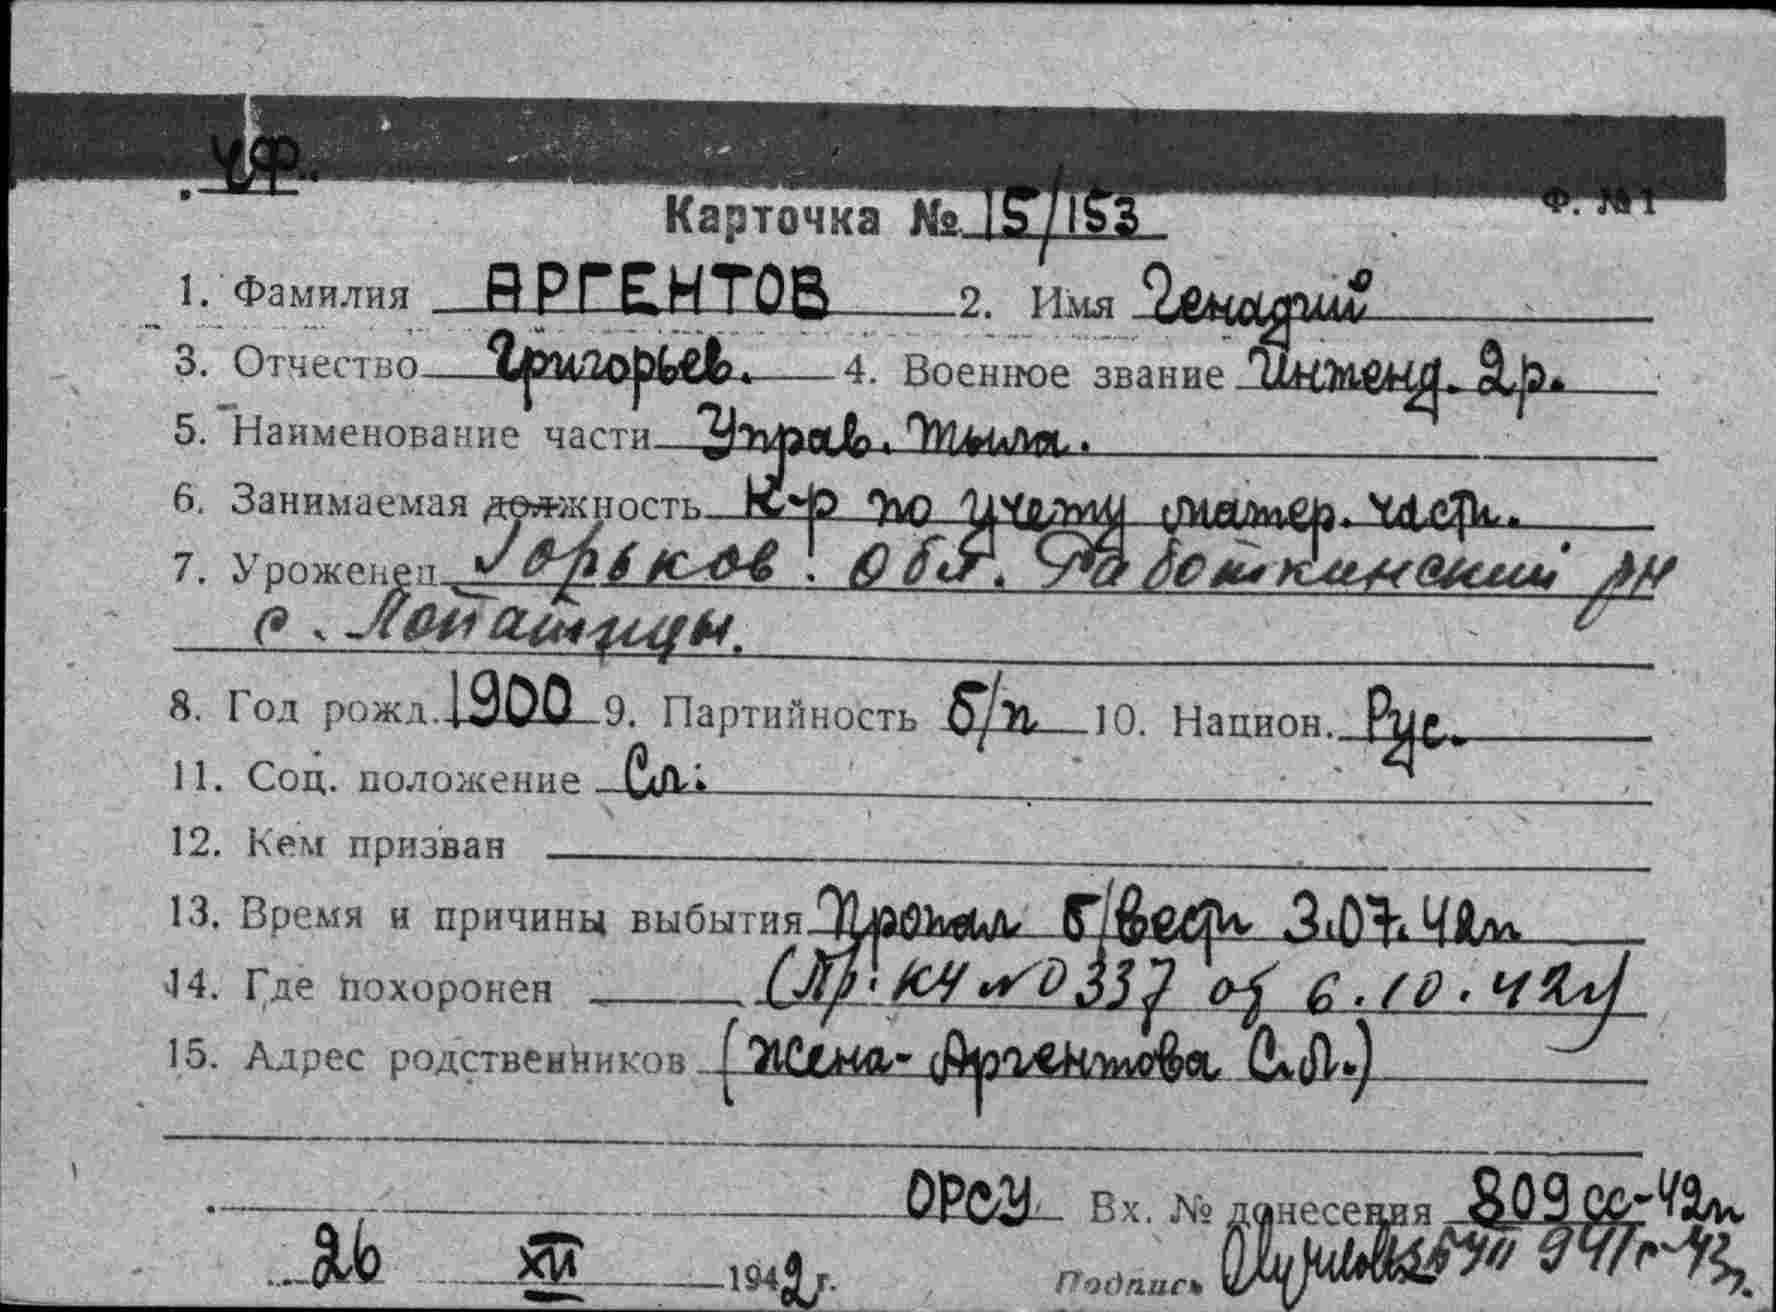 ЧФ.
Карточка № 15/153
Ф. № 1
1. Фамилия АРГЕНТОВ 2. Имя Генадий
3. Отчество Григорьев. 4. Военное звание Интенд. 2 р.
5. Наименование части Управ. тыла.
6. Занимаемая должность К-р по учету матер. части.
7. Уроженец Горьков. обл. Работкинский рн
с. Лопатицы.
8. Год рожд. 1900 9. Партийность б/п 10. Национ. Рус.
11. Соц. положение Сл.
12. Кем призван
13. Время и причины выбытия Пропал б/вести 3.07.42г
14. Где похоронен (Пр. КЧ № 0337 от 6.10.42г)
15. Адрес родственников (Жена - Аргентова С.П.)
ОРСУ Вх. № донесения 809сс-42г
26 XII 1942 г. Подпись